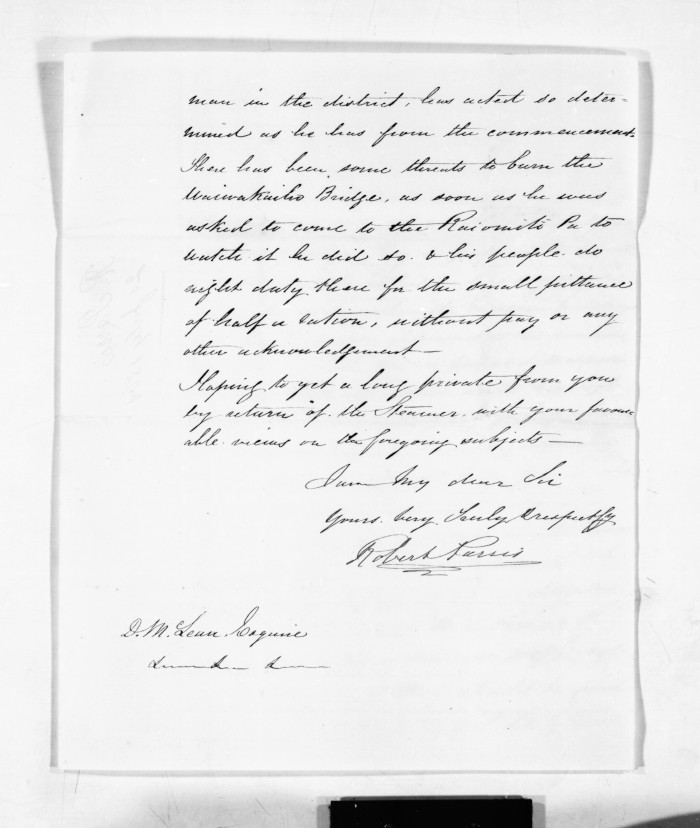 man in the district, has acted so deter-
mined as he has from the commencement.
There has been some threats to burn the
Waiwakaiho Bridge, as soon as he was
asked to come to the Raiomiti Pa to
watch it he did so. & his people do
night duty there for the small pittance
of half a ration, without pay or any
other acknowledgement—
Hoping to get a long private from you
by return of the Steamer with your favour
able views on the foregoing subjects—
I am My dear Sir
Yours Very Truly & respectfy
Robert Parris
D. McLean Esquire